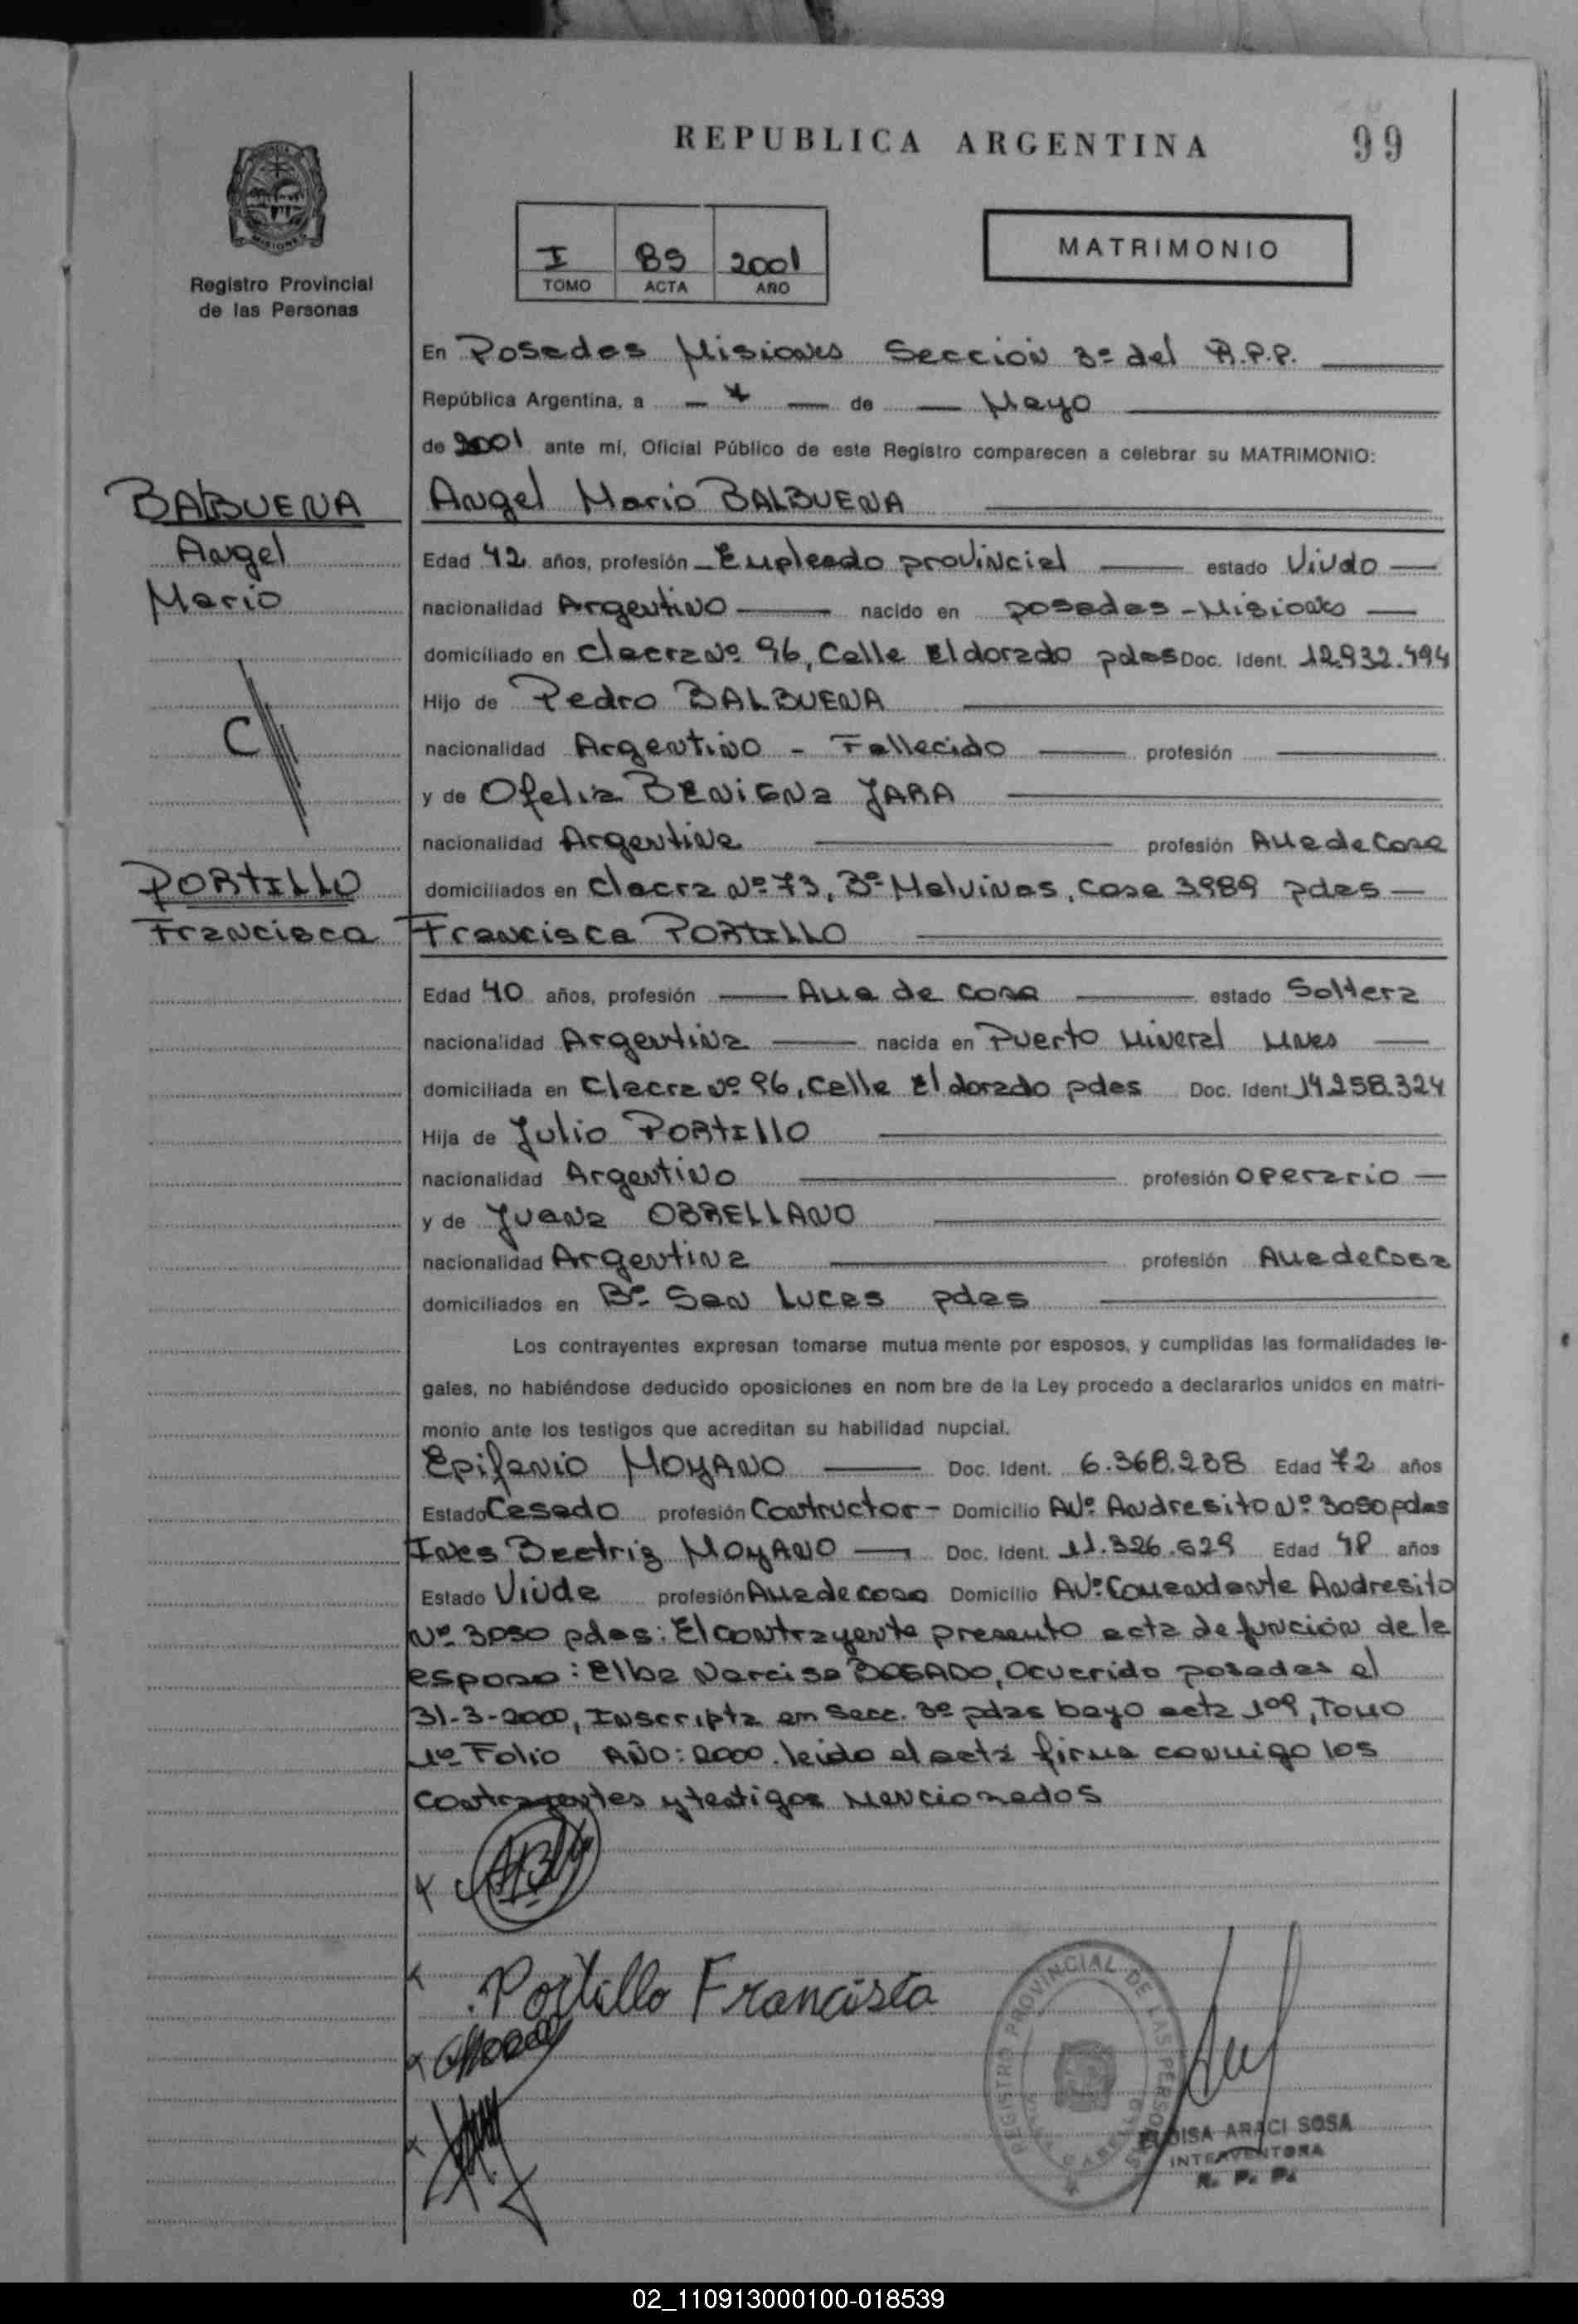 REPUBLICA ARGENTINA
99
Registro Provincial
de las Personas
I 89 2001
TOMO ACTA AÑO
MATRIMONIO
En Posadas Misiones Sección 3º del R.P.P.
República Argentina, a - 7 - de - Mayo
de 2001 ante mí, Oficial Público de este Registro comparecen a celebrar su MATRIMONIO:
BABUENA
Angel
Mario
Angel Mario BALBUENA
Edad 42 años, profesión Empleado provincial estado Viudo
nacionalidad Argentino nacido en posadas - Misiones
domiciliado en Chacra Nº 96, Calle Eldorado pdas Doc. Ident. 12.932.494
Hijo de Pedro BALBUENA
C
nacionalidad Argentino - Fallecido profesión
y de Ofelia BENIGNa JARA
nacionalidad Argentina profesión Ama de Casa
domiciliados en Chacra Nº 73, Bº Malvinas, Casa 3989 pdas
PORTILLO
Francisca
Francisca PORTILLO
Edad 40 años, profesión Ama de casa estado Soltera
nacionalidad Argentina nacida en Puerto Mineral Mnes
domiciliada en Chacra Nº 96, Calle Eldorado pdas Doc. Ident. 14.258.324
Hija de Julio PORTIllO
nacionalidad Argentino profesión operario
y de Juana OBRELLANO
nacionalidad Argentina profesión Ama de Casa
domiciliados en Bº San Lucas pdas
Los contrayentes expresan tomarse mutua mente por esposos, y cumplidas las formalidades le-
gales, no habiéndose deducido oposiciones en nom bre de la Ley procedo a declararlos unidos en matri-
monio ante los testigos que acreditan su habilidad nupcial.
Epifanio MOYANO Doc. Ident. 6.368.238 Edad 72 años
Estado Casado profesión Contructor - Domicilio Avº Andresito Nº 3050 pdas
Ines Beatriz MOYANO Doc. Ident. 11.326.629 Edad 48 años
Estado Viuda profesión Ama de casa Domicilio Avº Comandante Andresito
Nº 3050 pdas: El contrayente presento acta defunción de la
esposa: Elba Narcisa Ocurrida posadas el
31-3-2000, Inscripta em Secc. 3º pdas bayo acta 109, Tomo
1º Folio AÑO: 2000. leida el acta firma conmigo los
contrayentes y testigos mencionados
Portillo Francisca
REGISTRO PROVINCIAL DE LAS PERSONAS
ARACI SOSA
INTERVENTORA
R. P. P.
02_110913000100-018539